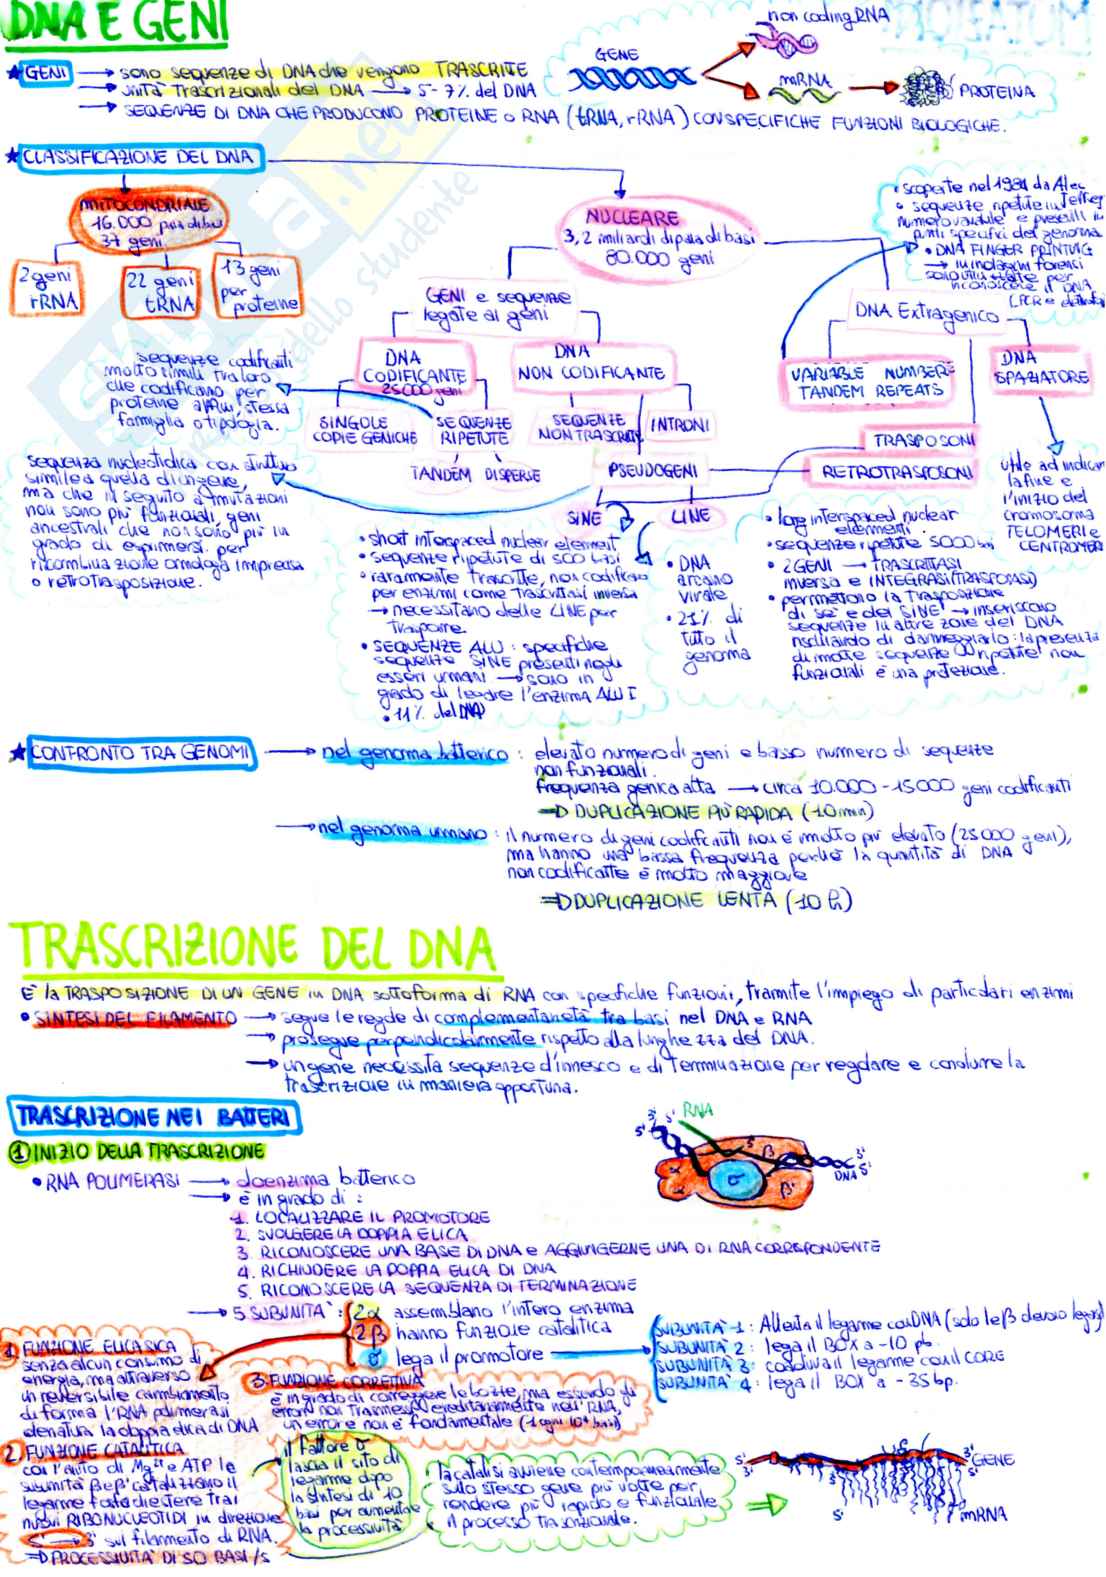 DNA E GENI
GENI → sono sequenze di DNA che vengono TRASCRITE
→ unità Trascrizionali del DNA → 5-7% del DNA
→ SEQUENZE DI DNA CHE PRODUCONO PROTEINE o RNA (tRNA, rRNA) CON SPECIFICHE FUNZIONI BIOLOGICHE.
GENE
non coding RNA
mRNA
PROTEINA
CLASSIFICAZIONE DEL DNA
MITOCONDRIALE
16.000 paia di basi
37 geni
2 geni
rRNA
22 geni
tRNA
13 geni
per
proteine
NUCLEARE
3,2 miliardi di paia di basi
30.000 geni
GENI e sequenze
legate ai geni
DNA
CODIFICANTE
25000 geni
DNA
NON CODIFICANTE
SINGOLE
COPIE GENICHE
SEQUENZE
RIPETUTE
TANDEM DISPERSE
SEQUENZE
NON TRASCRITTE
INTRONI
PSEUDOGENI
SINE
LINE
DNA Extragenico
VARIABLE NUMBERE
TANDEM REPEATS
DNA
SPAZIATORE
TRASPOSONI
RETROTRASPOSONI
• scoperte nel 1984 da Alec
• sequenze ripetute in
numero variabile e presenti in
punti specifici del genoma
• DNA FINGER PRINTING
→ in indagini forensi
sono utilizzate per
riconoscere il DNA
utile ad indicare
la fine e
l'inizio del
cromosoma
TELOMERI e
CENTROMERI
sequenze codificanti
molto simili tra loro
che codificano per
proteine affini, stessa
famiglia o tipologia.
sequenza nucleotidica con struttura
simile a quella di un gene,
ma che in seguito a mutazioni
non sono più funzionali, geni
ancestrali che non sono più in
grado di esprimersi per
ricombinazione omologa imprecisa
o retrotrasposizione.
• short interspaced nuclear element
• sequenze ripetute di 500 basi
• raramente trascritte, non codificano
per enzimi come Trascrittasi inversa
→ necessitano delle LINE per
Trasporre.
• SEQUENZE ALU: specifiche
sequenze SINE presenti negli
esseri umani → sono in
grado di legare l'enzima ALU I
• 11% del DNA
• DNA
arcano
virale
• 21% di
tutto il
genoma
• long interspaced nuclear
elementi
• sequenze ripetute 5000 basi
• 2 GENI → TRASCRITTASI
inversa e INTEGRASI (TRASPOSASI)
• permettono la Trasposizione
di se' e dei SINE → inseriscono
sequenze in altre zone del DNA
rischiando di danneggiarlo: la presenza
di molte sequenze ripetute non
funzionali è una protezione.
CONFRONTO TRA GENOMI → nel genoma batterico: elevato numero di geni e basso numero di sequenze
non funzionali.
frequenza genica alta → circa 10.000-15000 geni codificanti
⇒ DUPLICAZIONE PIÙ RAPIDA (10 min)
→ nel genoma umano: il numero di geni codificanti non è molto più elevato (25000 geni),
ma hanno una bassa frequenza perché la quantità di DNA
non codificante è molto maggiore
⇒ DUPLICAZIONE LENTA (10 h)
TRASCRIZIONE DEL DNA
E' la TRASPOSIZIONE DI UN GENE in DNA sottoforma di RNA con specifiche funzioni, tramite l'impiego di particolari enzimi
• SINTESI DEL FILAMENTO → segue le regole di complementarietà tra basi nel DNA e RNA
→ prosegue perpendicolarmente rispetto alla lunghezza del DNA.
→ un gene necessita sequenze d'innesco e di terminazione per regolare e condurre la
trascrizione in maniera opportuna.
TRASCRIZIONE NEI BATTERI
1 INIZIO DELLA TRASCRIZIONE
• RNA POLIMERASI → oloenzima batterico
→ è in grado di:
1. LOCALIZZARE IL PROMOTORE
2. SVOLGERE LA DOPPIA ELICA
3. RICONOSCERE UNA BASE DI DNA e AGGIUNGERNE UNA DI RNA CORRISPONDENTE
4. RICHIUDERE LA DOPPIA ELICA DI DNA
5. RICONOSCERE LA SEQUENZA DI TERMINAZIONE
→ 5 SUBUNITA': 2α assemblano l'intero enzima
2β hanno funzione catalitica
σ lega il promotore
SUBUNITA' 1: Allenta il legame col DNA (solo le β devono legarsi)
SUBUNITA' 2: lega il BOX a -10 pb.
SUBUNITA' 3: coadiuva il legame con il CORE
SUBUNITA' 4: lega il BOX a -35 bp.
3' 5' RNA
5'
5' β
α
α
σ
β'
3'
5'
DNA
1. FUNZIONE ELICASICA
senza alcun consumo di
energia, ma attraverso
un reversibile cambiamento
di forma l'RNA polimerasi
denatura la doppia elica di DNA
3. FUNZIONE CORRETTIVA
è in grado di correggere le bozze, ma essendo gli
errori non trasmessi ereditariamente nell'RNA,
un errore non è fondamentale (1 ogni 10⁴ basi)
2. FUNZIONE CATALITICA
con l'aiuto di Mg²⁺ e ATP le
subunità β e β' catalizzano il
legame fosfodiestere tra i
nuovi RIBONUCLEOTIDI in direzione
5' → 3' sul filamento di RNA.
⇒ PROCESSIVITA' DI 50 BASI/s
il fattore σ
lascia il sito di
legame dopo
la sintesi di 10
basi per aumentare
la processività
• la catalisi avviene contemporaneamente
sullo stesso gene più volte per
rendere più rapido e funzionale
il processo trascrizionale.
5'
3'
3'
5'
GENE
5'
mRNA